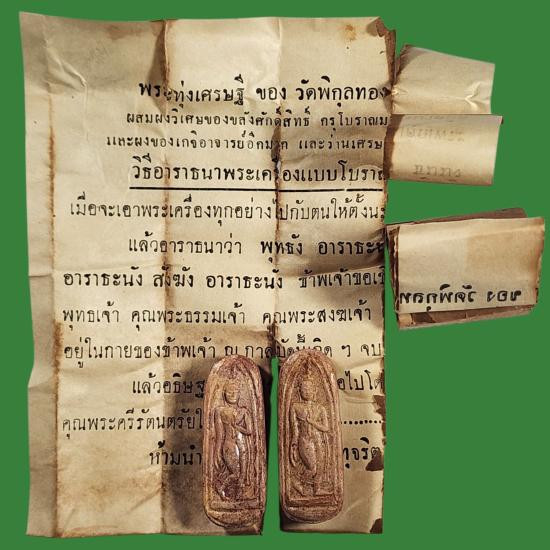 พระทุ่งเศรษฐี ของ วัดพิกุลทอง
ผสมผงวิเศษของขลังศักดิ์สิทธิ์ กรุโบราณ
และผงของเกจิอาจารย์อีกมาก และว่านเศรษ
วิธีอาราธนาพระเครื่องแบบโบราณ
เมื่อจะเอาพระเครื่องทุกอย่างไปกับตนให้ตั้งนะ
แล้วอาราธนาว่า พุทธัง อาราธะ
อาราธะนัง สังฆัง อาราธะนัง ข้าพเจ้าขอเชิ
พุทธเจ้า คุณพระธรรมเจ้า คุณพระสงฆเจ้า
อยู่ในกายของข้าพเจ้า ณ กาลบัดนี้เถิด ๆ จบ
แล้วอธิษฐ อไปได้
คุณพระศรีรัตนตรัยใ
ห้ามนำ ทุจริต
ของ วัดพิกุลท